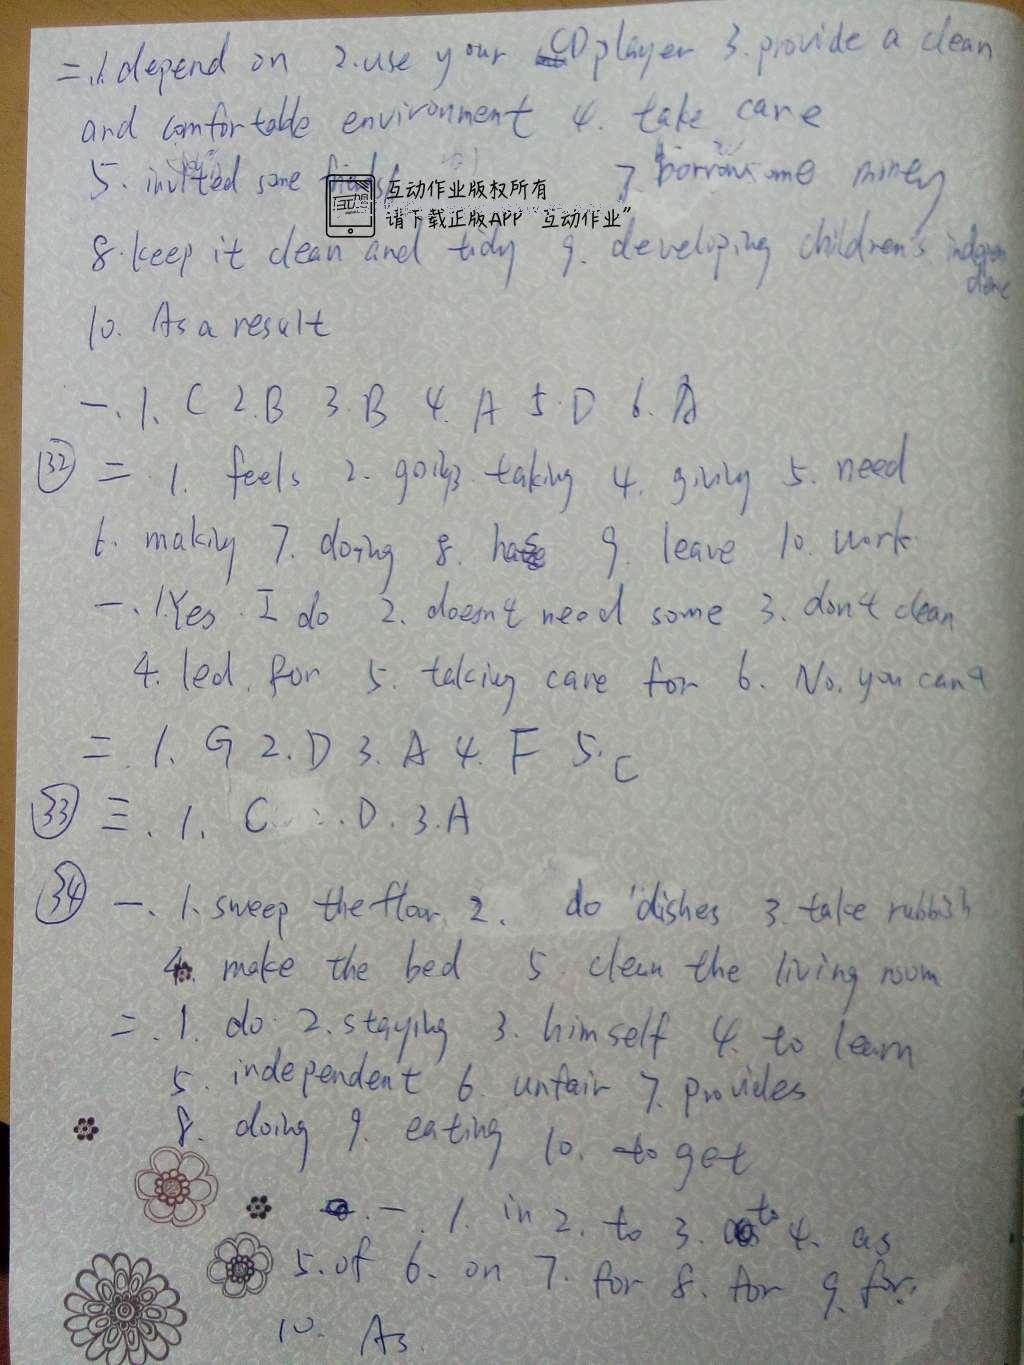 二.1.depend on 2.use your CD player 3.provide a clean
and comfortable environment 4. take care
5. invited some friends 7 borrow some money
互动作业版权所有
请下载正版APP "互动作业"
8.keep it clean and tidy 9. developing children's indepen
dence
10. As a result
一.1. C 2.B 3.B 4. A 5.D 6. A
32 二 1. feels 2. going 3. taking 4. giving 5. need
6. making 7. doing 8. has 9. leave 10. work
一.1.Yes. I do 2. doesn't need some 3. don't clean
4. led for 5. taking care for 6. No. you can't
二.1. G 2.D 3. A 4. F 5.C
33 三.1. C D. 3.A
34 一.1. sweep the floor 2. do dishes 3. take rubbish
4. make the bed 5. clean the living room
二.1. do 2.staying 3. himself 4. to learn
5. independent 6. unfair 7. provides
8. doing 9. eating 10. to get
一.1. in 2. to 3. to 4. as
5.of 6. on 7. for 8. for 9. for.
10. As